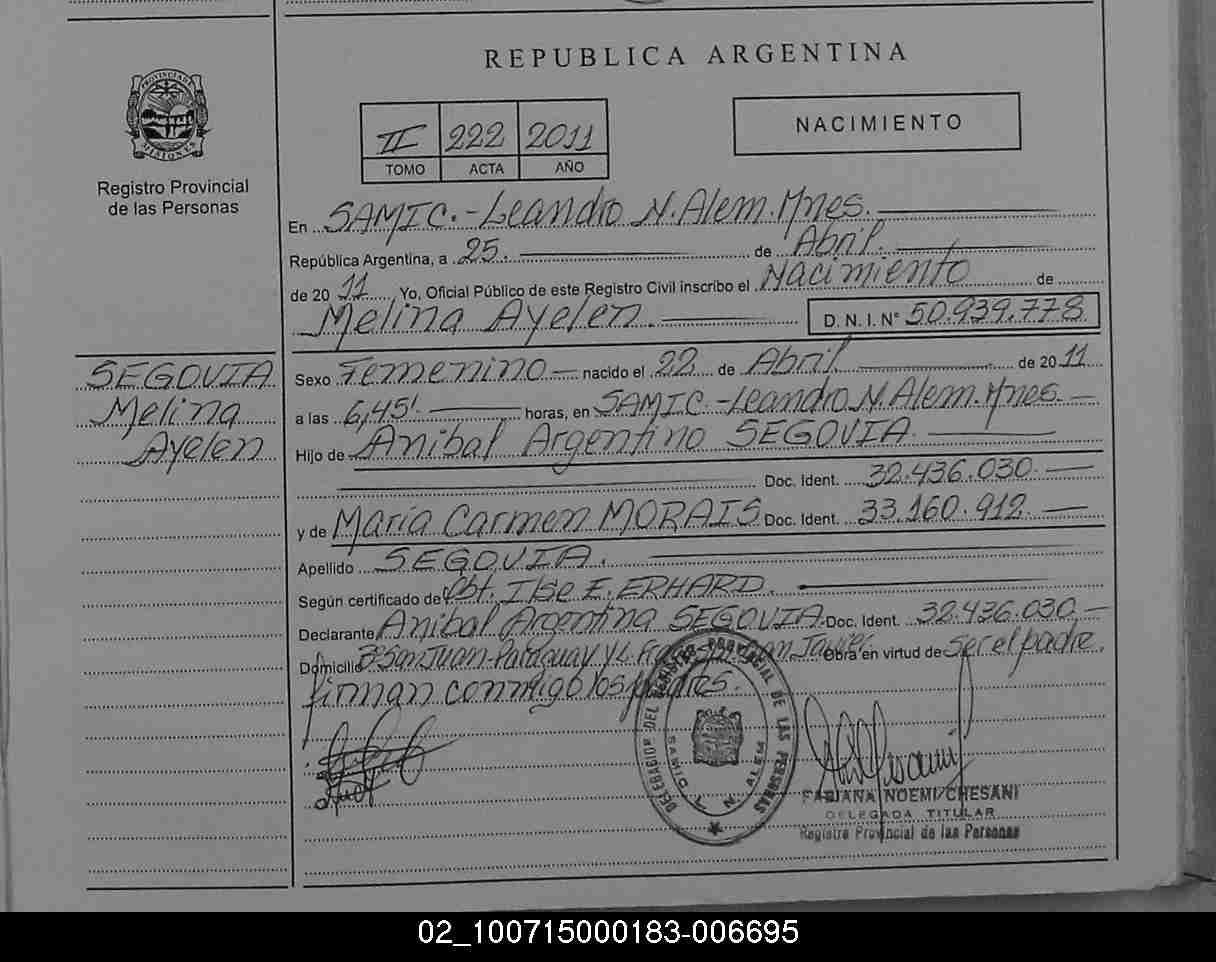 REPUBLICA ARGENTINA
PROVINCIA DE
MISIONES
Registro Provincial
de las Personas
II 222 2011
TOMO ACTA AÑO
NACIMIENTO
En SAMIC.-Leandro N. Alem. Mnes.
República Argentina, a 25. de Abril.
de 20 11 Yo, Oficial Público de este Registro Civil inscribo el Nacimiento de
Melina Ayelen. D. N. I. N° 50.939.778
SEGOVIA
Melina
Ayelen
Sexo Femenino nacido el 22 de Abril de 20 11
a las 6,45' horas, en SAMIC.-Leandro N. Alem. Mnes.
Hijo de Anibal Argentino SEGOVIA.
Doc. Ident. 32.436.030
y de María Carmen MORAIS Doc. Ident. 33.160.912
Apellido SEGOVIA.
Según certificado de Obt. Ilse E. ERHARD.
Declarante Anibal Argentino SEGOVIA. Doc. Ident. 32.436.030
Domicilio Bº San Juan-Paraguay y L. San Javier Obra en virtud de ser el padre.
firman conmigo los padres.
DELEGACION DEL REGISTRO PROVINCIAL DE LAS PERSONAS
SAMIC L. N. ALEM
FABIANA NOEMI CHESANI
DELEGADA TITULAR
Registro Provincial de las Personas
02_100715000183-006695